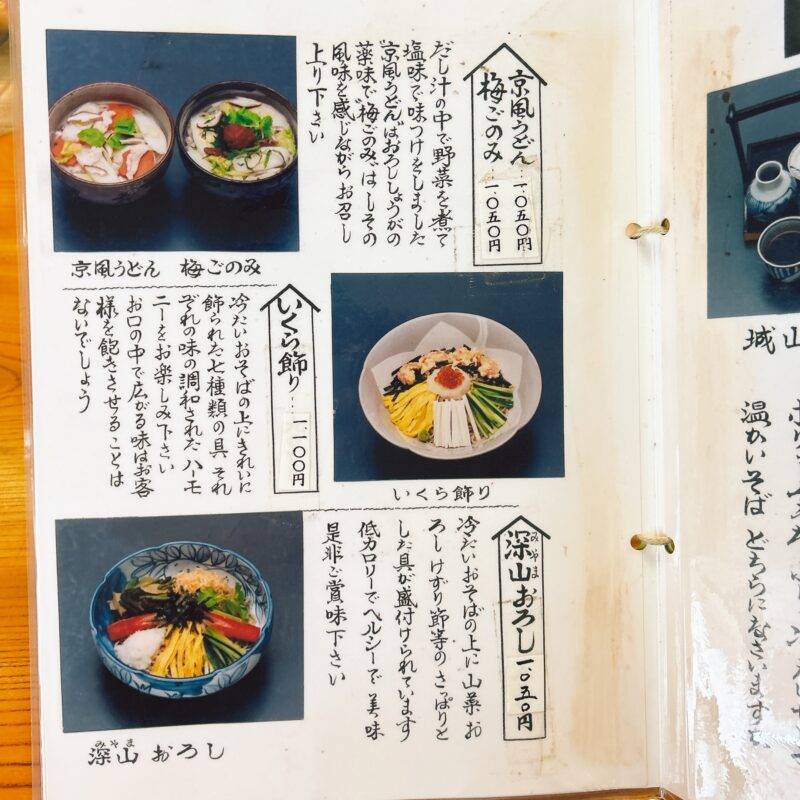 京風うどん…一〇五〇円
梅ごのみ…一〇五〇円
だし汁の中で野菜を煮て
塩味で味つけをしました
"京風うどん"はおろししょうがの
薬味で"梅ごのみ"はしその
風味を感じながらお召し
上り下さい
京風うどん 梅ごのみ
いくら飾り…一一〇〇円
冷たいおそばの上にきれいに
飾られた七種類の具 それ
ぞれの味の調和されたハーモ
ニーをお楽しみ下さい
お口の中で広がる味はお客
様を飽きさせることは
ないでしょう
いくら飾り
深山おろし 一〇五〇円
みやま
冷たいおそばの上に山菜 お
ろし けずり節等のさっぱりと
した具が盛付けられています
低カロリーでヘルシーで美味
是非ご賞味下さい
深山おろし
みやま
城山
温かいそば どちらになさいますか